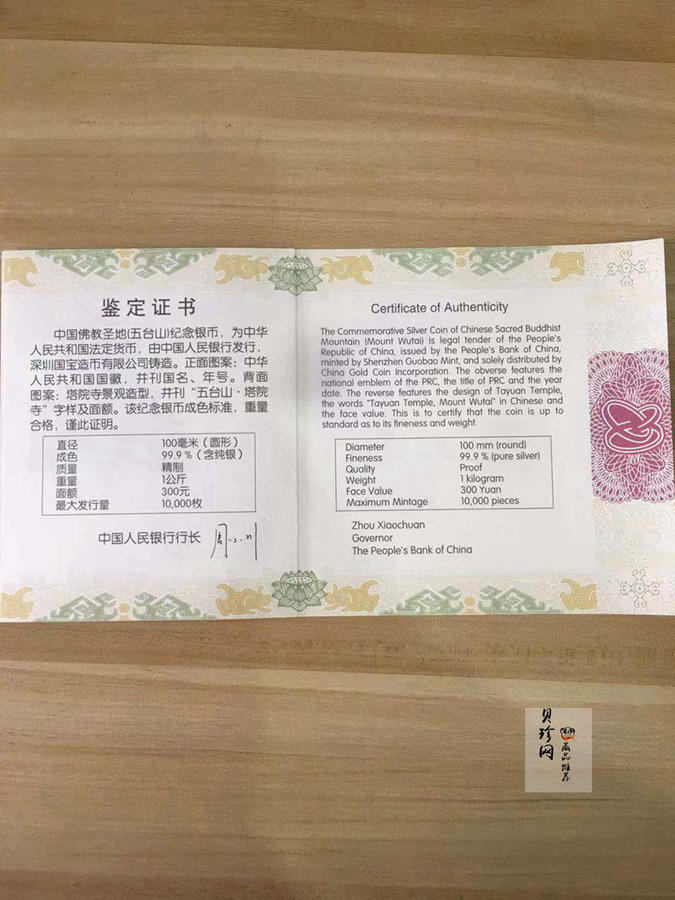 鉴定证书
中国佛教圣地(五台山)纪念银币，为中华
人民共和国法定货币，由中国人民银行发行，
深圳国宝造币有限公司铸造。正面图案：中华
人民共和国国徽，并刊国名、年号。背面
图案：塔院寺景观造型，并刊“五台山·塔院
寺”字样及面额。该纪念银币成色标准，重量
合格，谨此证明。
直径 100毫米（圆形）
成色 99.9%（含纯银）
质量 精制
重量 1公斤
面额 300元
最大发行量 10,000枚
中国人民银行行长 周小川
Certificate of Authenticity
The Commemorative Silver Coin of Chinese Sacred Buddhist
Mountain (Mount Wutai) is legal tender of the People's
Republic of China, issued by the People's Bank of China,
minted by Shenzhen Guobao Mint, and solely distributed by
China Gold Coin Incorporation. The obverse features the
national emblem of the PRC, the title of PRC and the year
date. The reverse features the design of Tayuan Temple,
the words "Tayuan Temple, Mount Wutai" in Chinese and
the face value. This is to certify that the coin is up to
standard as to its fineness and weight.
Diameter 100 mm (round)
Fineness 99.9% (pure silver)
Quality Proof
Weight 1 kilogram
Face Value 300 Yuan
Maximum Mintage 10,000 pieces
Zhou Xiaochuan
Governor
The People's Bank of China
贝珍网
藏品推荐